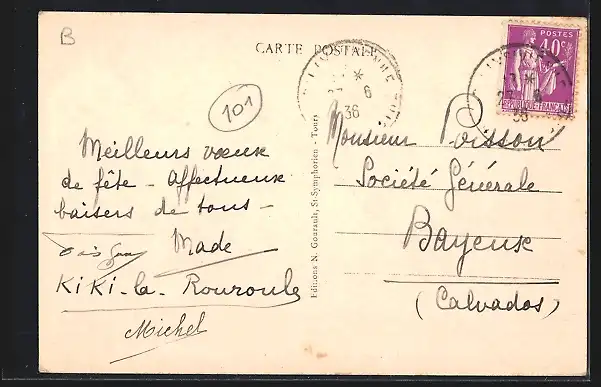 B
CARTE POSTALE
POSTES
40c
REPUBLIQUE FRANÇAISE
6
36
6
36
101
Meilleurs vœux
de fête - Affectueux
baisers de tous -
Made
KiKi-la-Rouroule
Michel
Editions N. Gourault, St-Symphorien - Tours
Monsieur Poisson
Société Générale
Bayeux
(Calvados)